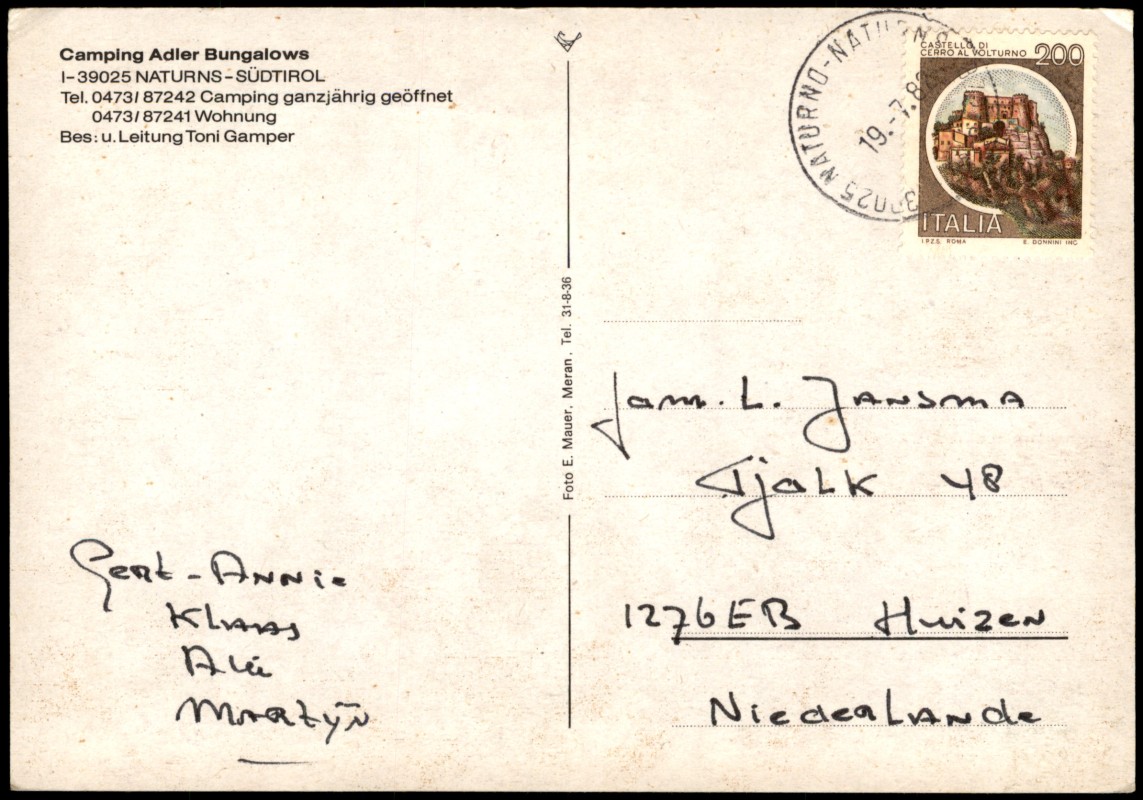 Camping Adler Bungalows
I-39025 NATURNS-SÜDTIROL
Tel. 0473/87242 Camping ganzjährig geöffnet
0473/87241 Wohnung
Bes: u. Leitung Toni Gamper
Gert-Annie
Klaas
Alie
Martijn
Foto E. Mauer, Meran, Tel. 31-8-36
39025 NATURNO-NATURNS
19.-7.8
CASTELLO DI
CERRO AL VOLTURNO
200
ITALIA
I.P.Z.S. ROMA
E. DONNINI INC.
Fam. L. JANSMA
Tjalk 48
1276EB Huizen
Niederlande